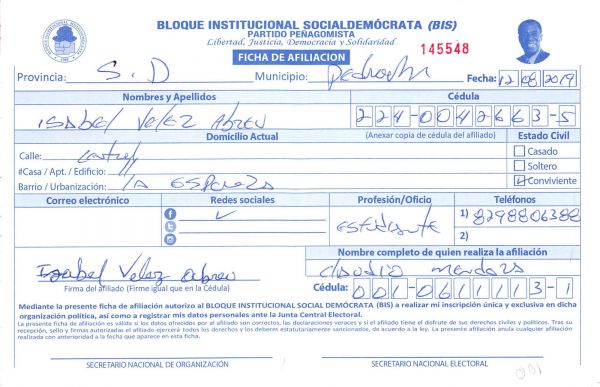 BLOQUE INSTITUCIONAL SOCIALDEMÓCRATA (BIS)
PARTIDO PEÑAGOMISTA
Libertad, Justicia, Democracia y Solidaridad
145548
FICHA DE AFILIACION
Provincia: S.D Municipio: Fecha: 12 08 2019
Nombres y Apellidos Cédula
ISABEL VELEZ ABREU 224-0042663-5
Domicilio Actual (Anexar copia de cédula del afiliado) Estado Civil
Calle: Casado
#Casa / Apt. / Edificio: Soltero
Barrio / Urbanización: LA ESPERANZA Conviviente
Correo electrónico Redes sociales Profesión/Oficio Teléfonos
ESTUDIANTE 1) 8298806388
2)
Nombre completo de quien realiza la afiliación
Isabel Velez Abreu Claudio Mendoza
Firma del afiliado (Firme igual que en la Cédula) Cédula: 001-0611113-1
Mediante la presente ficha de afiliación autorizo al BLOQUE INSTITUCIONAL SOCIAL DEMÓCRATA (BIS) a realizar mi inscripción única y exclusiva en dicha
organización política, así como a registrar mis datos personales ante la Junta Central Electoral.
La presente ficha de afiliación es válida si los datos ofrecidos por el afiliado son correctos, las declaraciones veraces y si el afiliado tiene el disfrute de sus derechos civiles y políticos. Tras su
recepción, sello y firmas autorizadas el afiliado ejercerá todos los derechos y los deberes estatutariamente sancionados, de acuerdo a la ley. La presente afiliación anula cualquier afiliación
realizada con anterioridad a la fecha que aparece en esta ficha.
SECRETARIO NACIONAL DE ORGANIZACIÓN SECRETARIO NACIONAL ELECTORAL